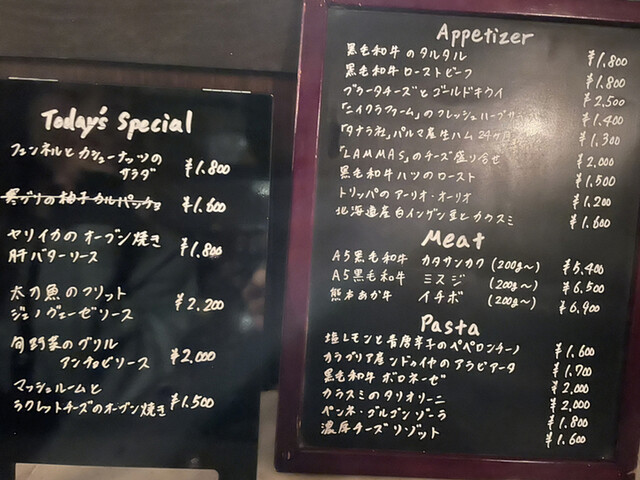 Today's Special
フェンネルとカシューナッツの
サラダ ¥1.800
黒ブリの柚子カルパッチョ ¥1.600
ヤリイカのオーブン焼き
肝バターソース ¥1.800
太刀魚のフリット
ジェノヴェーゼソース ¥2,200
旬野菜のグリル
アンチョビソース ¥2.000
マッシュルームと
ラクレットチーズのオーブン焼き ¥1.500
Appetizer
黒毛和牛のタルタル ¥1.800
黒毛和牛ローストビーフ ¥1.800
ブラータチーズとゴールドキウイ ¥2,500
「ニイクラファーム」のフレッシュハーブサ ¥1.400
「タナラ社」パルマ産生ハム24ヶ月 ¥1.300
「LAMMAS」のチーズ盛り合せ ¥2.000
黒毛和牛ハツのロースト ¥1.500
トリッパのアーリオ・オーリオ ¥1.200
北海道産白インゲン豆とカラスミ ¥1.600
Meat
A5黒毛和牛 カタサンカク (200g〜) ¥5.400
A5黒毛和牛 ミスジ (200g〜) ¥6.500
熊本あか牛 イチボ (200g〜) ¥6,900
Pasta
塩レモンと青唐辛子のペペロンチーノ ¥1.600
カラブリア産ンドゥイヤのアラビアータ ¥1.700
黒毛和牛ボロネーゼ ¥2,000
カラスミのタリオリーニ ¥2,000
ペンネ・ゴルゴンゾーラ ¥1.800
濃厚チーズリゾット ¥1.600